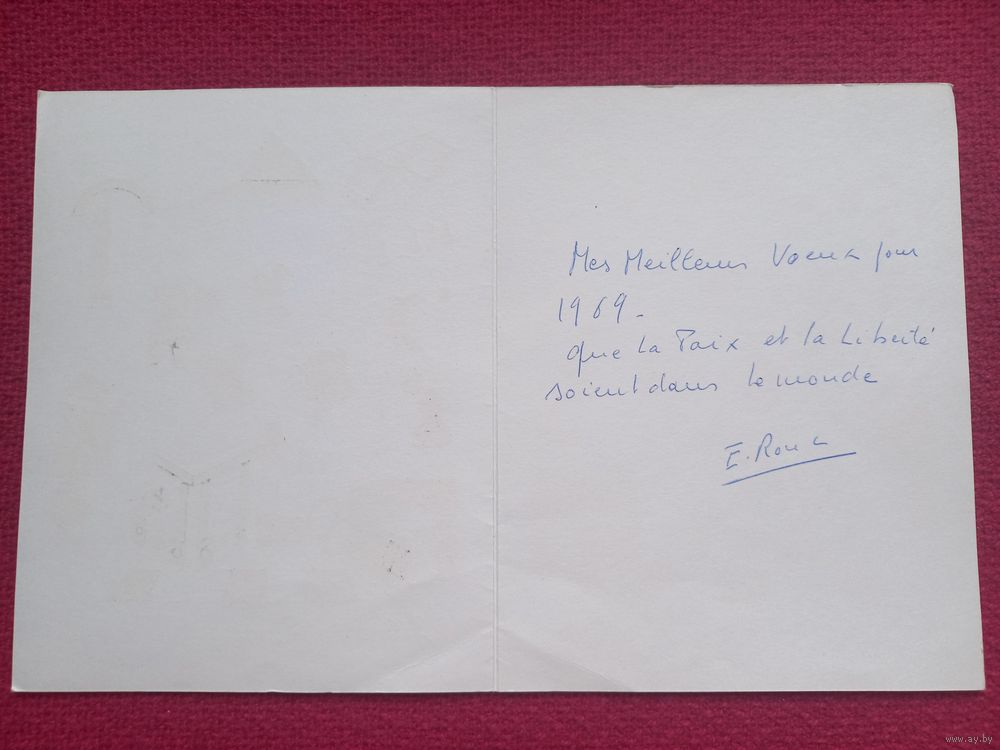 Mes Meilleurs Voeux pour
1969.
que la Paix et la Liberté
soient dans le monde
E. Roux
www.ay.by